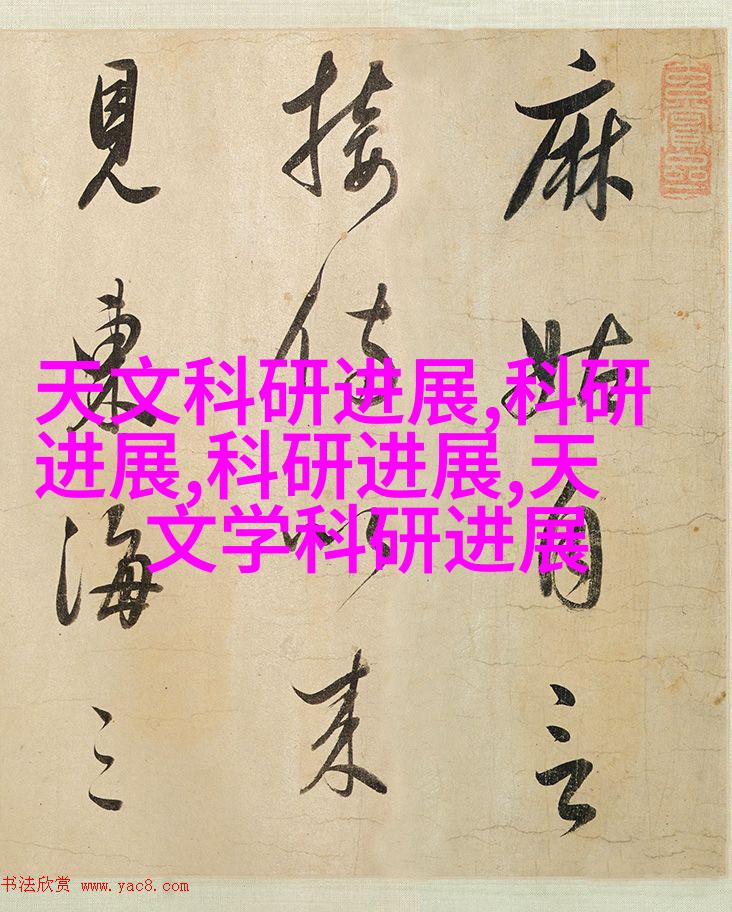 麻姑自言
接侍以来
見東海三
天文科研进展,科研
进展,科研进展,天
文学科研进展
书法欣赏 www.yac8.com